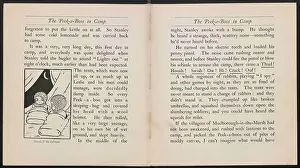 The Peek-a-Boos in Camp
forgotten to put the kettle on at all. So Stanley
had some cold lemonade and was carried back
to camp.
It was a very, very long day, this first day in
camp, and everybody was quite delighted when
Stanley told the bugler to sound "Lights out" at
eight o'clock, much earlier than had been expected.
The tents, which were now
all up, or as much up as
Linda and his men could
manage, were decidedly
damp inside. So every
Peek-a-boo got into a
sleeping bag and covered
his head with a wool
helmet. He then rolled,
like a very large sausage,
on to his own bit of wet
ground, and slept heavily.
In the middle of the
The Peek-a-Boos in Camp
night, Stanley awoke with a bump. He thought
he heard a strange, thick, watery noise—something
he'd never heard before.
He turned on his electric torch and loaded his
penny pistol. The noise came rushing nearer and
nearer, and before Stanley could fire the pistol or blow
his whistle to rouse the camp, there came a
A whole regiment of rabbits, playing "I spy"
and other games by night, as they are so fond of
doing, had charged into the tents. The tents were
never meant to stand a charge of rabbits; and they
didn't stand it. They crumpled up like broken
umbrellas, and squashed themselves down upon the
slumbering soldiers, and you could have heard the
squeals for miles.
If the villagers of Marlborough-in-the-Marsh had
not been awakened, and rushed with lanterns to the
camp, and picked the Peek-a-boos out of piles of
muddy canvas, I can't imagine what would have